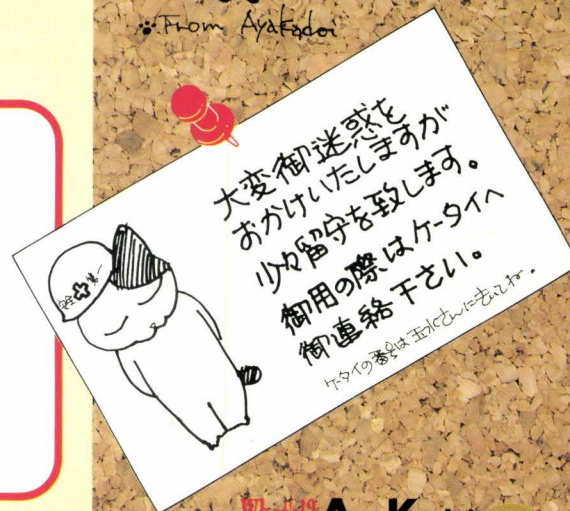 From Ayakadoi
大変御迷惑を
おかけいたしますが
少々留守を致します。
御用の際はケータイへ
御連絡下さい。
ケータイの番号は玉水さんにきいてね.
安全第一
What is